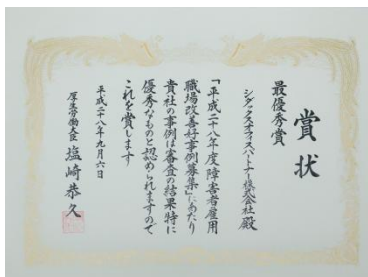 賞状
最優秀賞
シダックスオフィスパートナー株式会社 殿
「平成二十八年度障害者雇用
職場改善好事例募集」にあたり
貴社の事例は審査の結果特に
優秀なものと認められますので
これを賞します
平成二十八年九月六日
厚生労働大臣 塩崎恭久